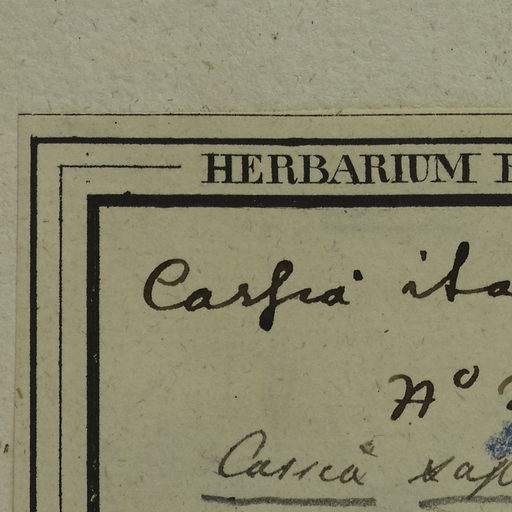 HERBARIUM
Cassia ita
Nº
Cassia